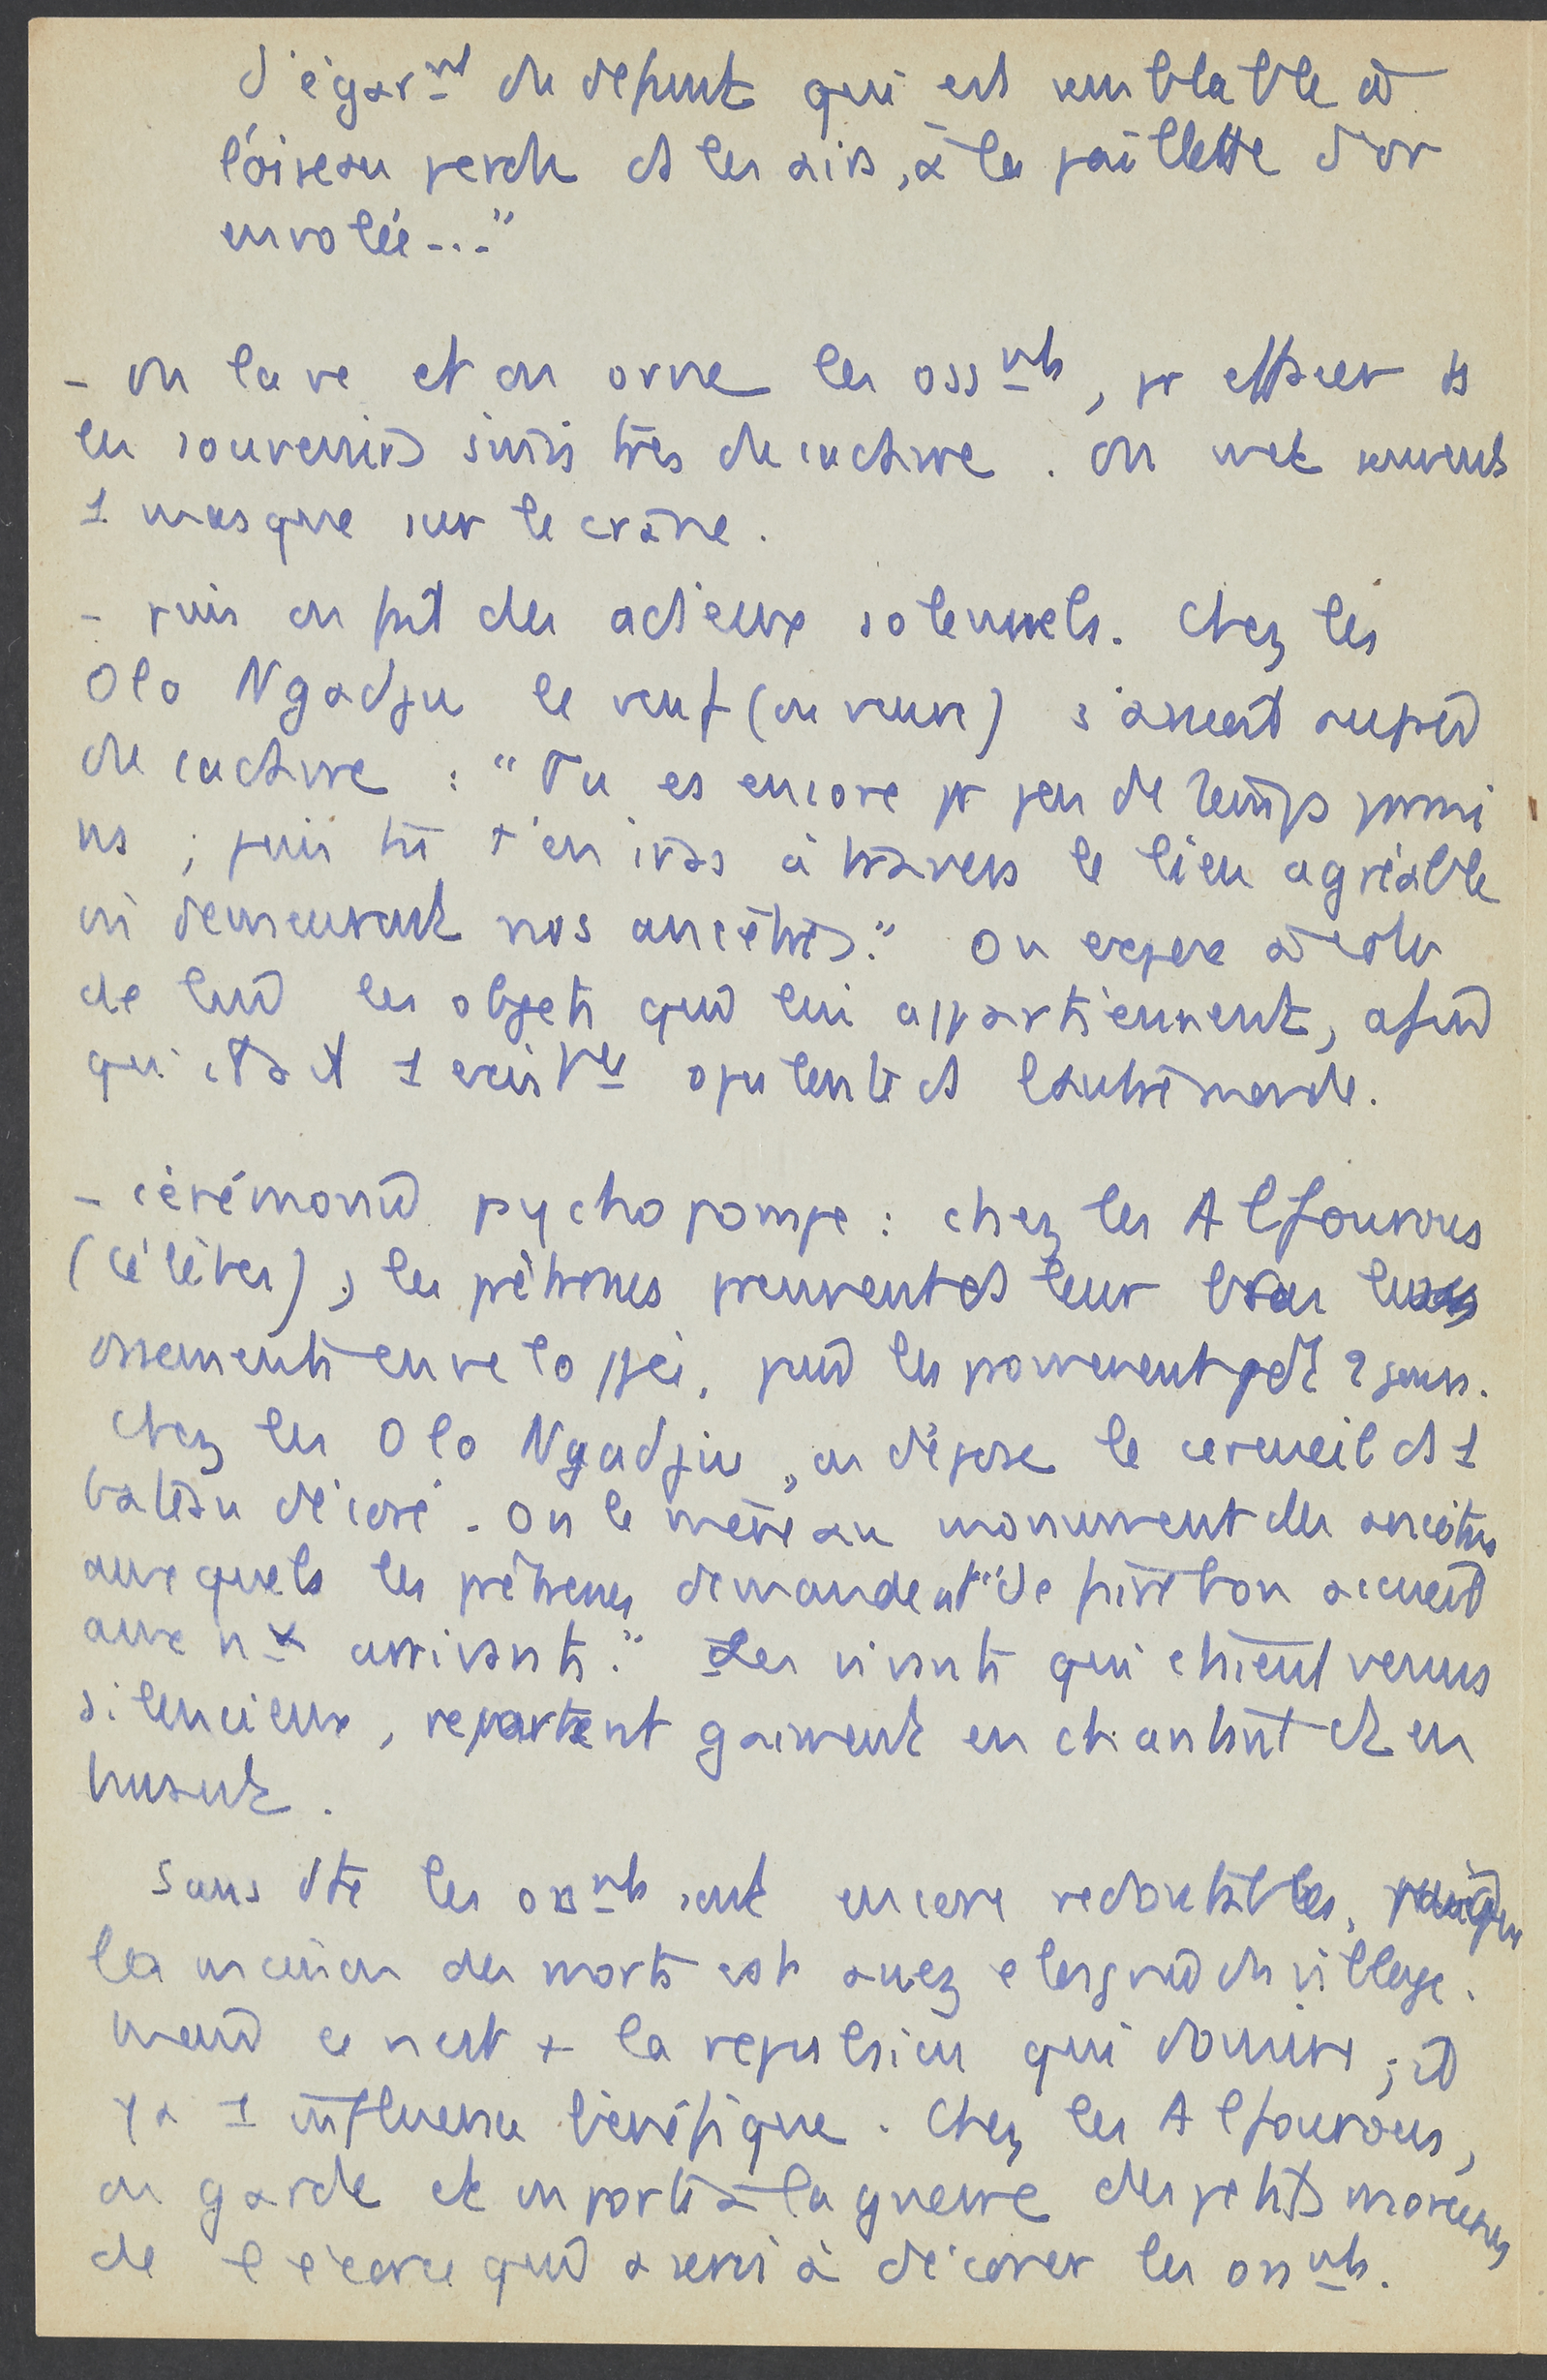 d'égarmt du défunt qui est semblable à
l'oiseau perdu ds les airs, à la paillette d'or
envolée..."
- on lave et on orne les ossmts, pr effacer ts
les souvenirs sinistres du cadavre. On met souvent
1 masque sur le crâne.
- puis on fait des adieux solennels. Chez les
Olo Ngadju le veuf (ou veuve) s'assoit auprès
du cadavre : "Tu es encore pr peu de temps parmi
ns ; puis tu t'en iras à travers le lieu agréable
où demeurent nos ancêtres." On expose à côté
de lui les objets qui lui appartiennent, afin
qu'il ait 1 existce opulente ds l'autre monde.
- cérémonie psychopompe : chez les Alfourous
(Célèbes), les prêtresses prennent ds leur bras les
ossements enveloppés, puis les promènent pdt 2 jours.
Chez les Olo Ngadju, on dépose le cercueil ds 1
bateau décoré. On le mène au monument des ancêtres
auxquels les prêtresses demandent "de faire bon accueil
aux nx arrivants." Les vivants qui étaient venus
silencieux, repartent gaiment en chantant et en
buvant.
Sans dte les ossmts sont encore redoutables, puisque
la maison des morts est assez éloignée du village.
Mais ce n'est + la répulsion qui domine ; il
y a 1 influence bénéfique. Chez les Alfourous,
on garde et on porte à la guerre des petits morceaux
de l'écorce qui a servi à décorer les ossmts.